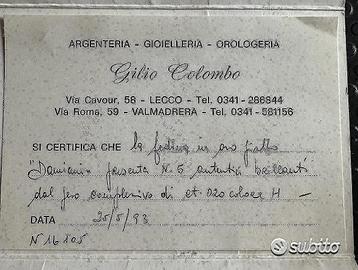 ARGENTERIA - GIOIELLERIA - OROLOGERIA
Gilio Colombo
Via Cavour, 58 - LECCO - Tel. 0341-286844
Via Roma, 59 - VALMADRERA - Tel. 0341-581156
SI CERTIFICA CHE la fedina in oro giallo
"Damiani" presenta N. 5 autentici brillanti
del peso complessivo di ct. 020 colore H -
DATA 25/5/93
N° 16805
subito